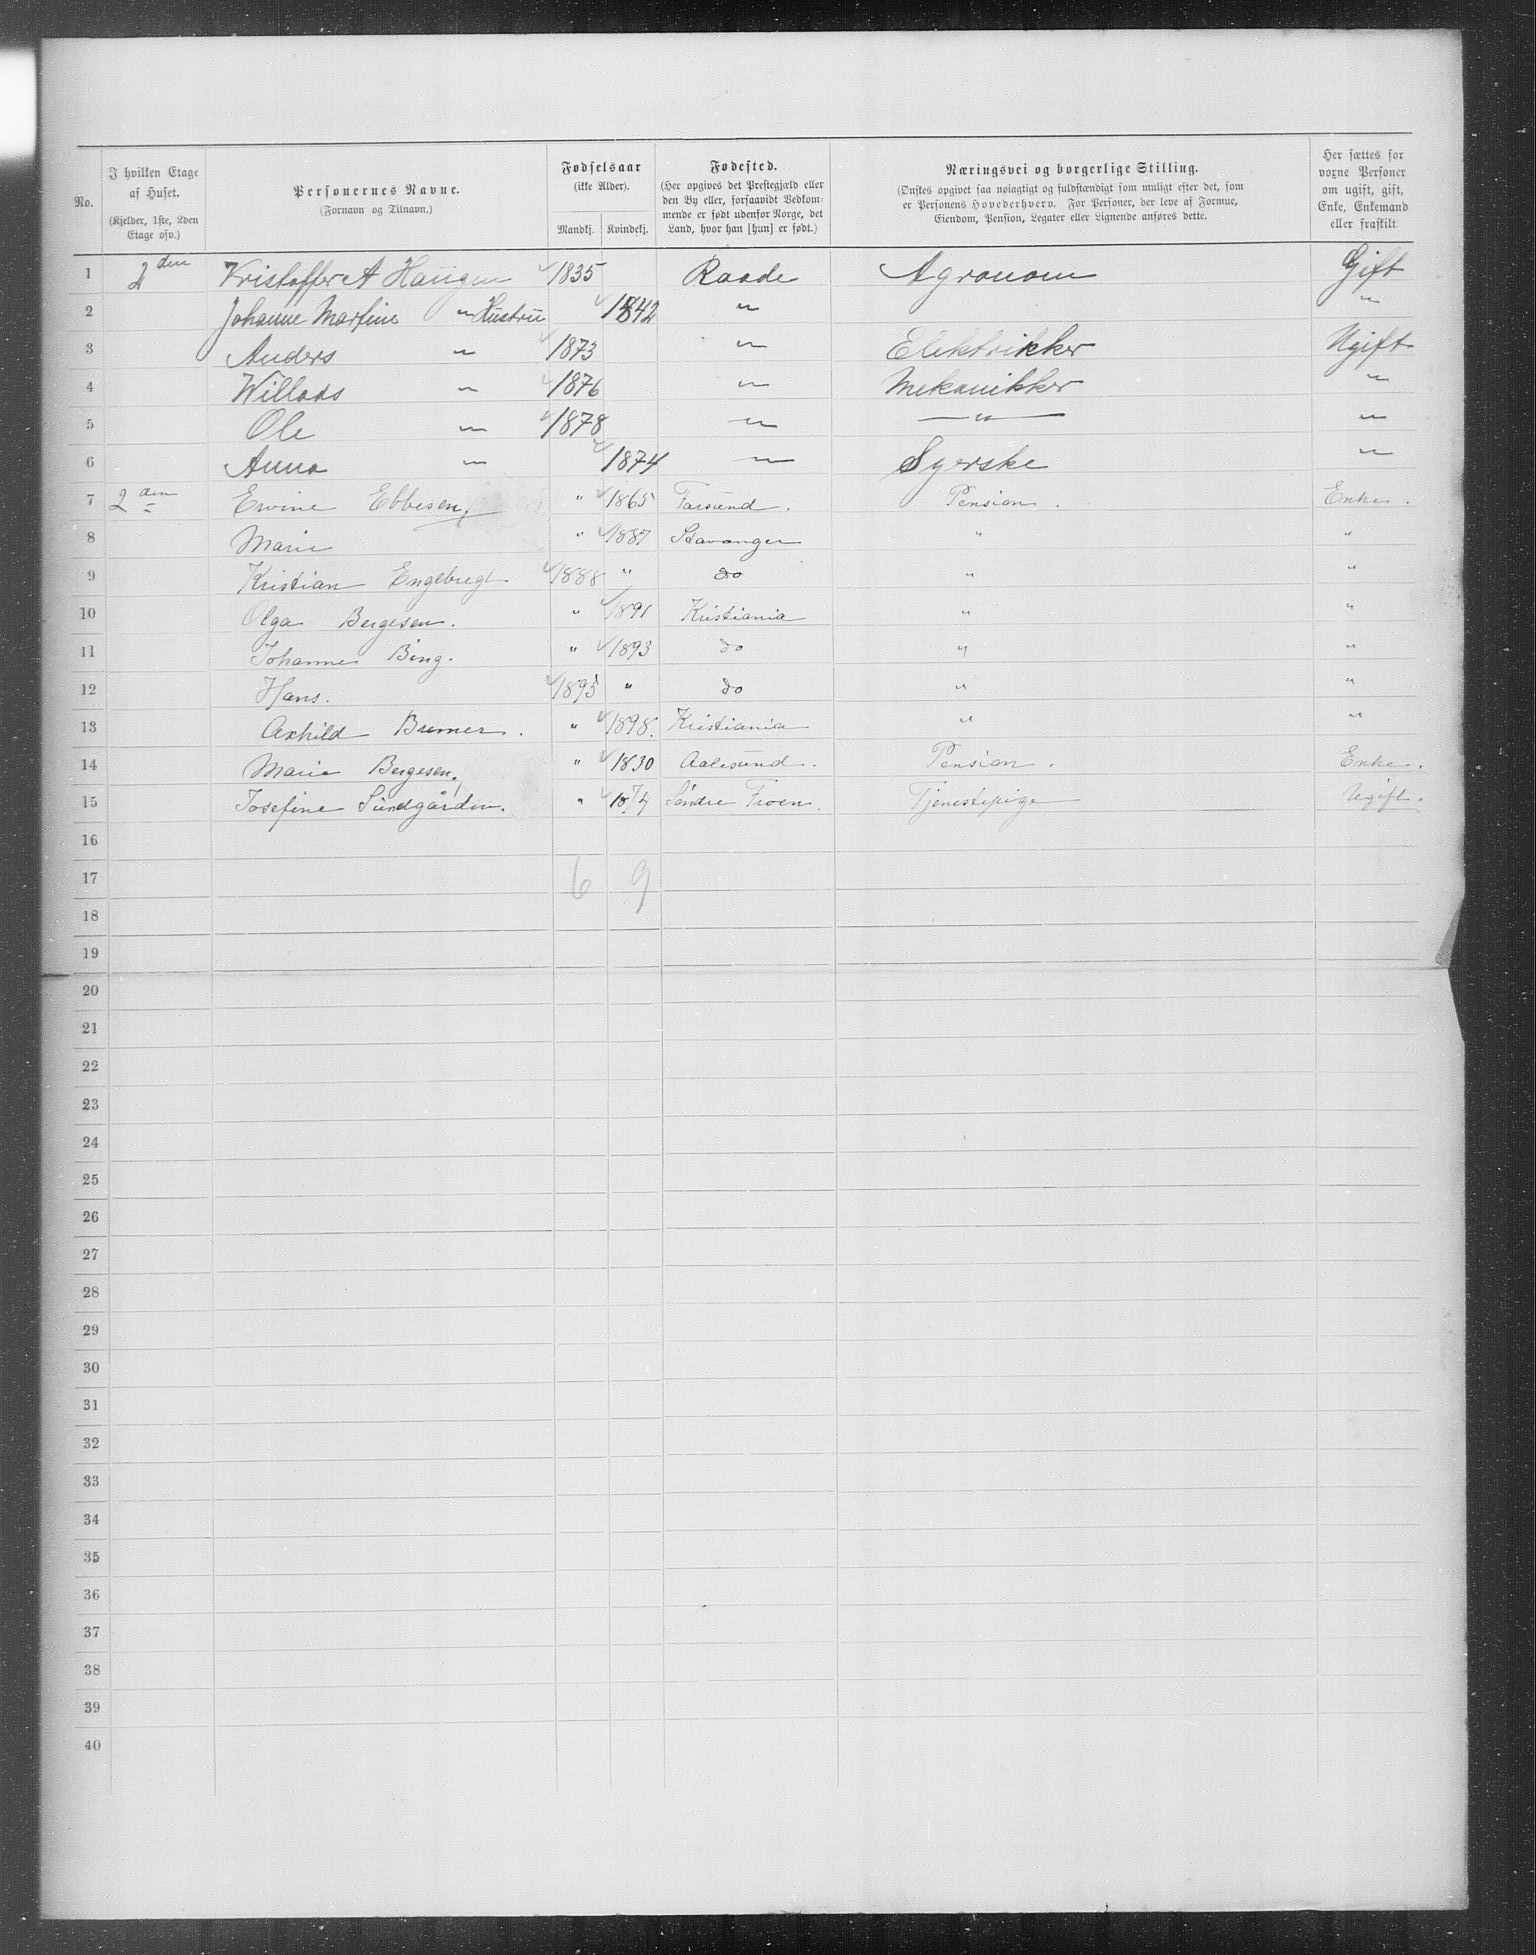 No.
I hvilken Etage af Huset.
(Kjelder, 1ste, 2den Etage osv.)
Personernes Navne.
(Fornavn og Tilnavn.)
Fødselsaar
(ikke Alder).
Mandkj. Kvindekj.
Fødested.
(Her opgives det Prestegjæld eller den By eller, forsaavidt Vedkommende er født udenfor Norge, det Land, hvor han [hun] er født.)
Næringsvei og borgerlige Stilling.
(Ønskes opgivet saa nøiagtigt og fuldstændigt som muligt efter det, som er Personens Hovederhverv. For Personer, der leve af Formue, Eiendom, Pension, Legater eller Lignende anføres dette.
Her sættes for voxne Personer om ugift, gift, Enke, Enkemand eller fraskilt
1 2den Kristoffer A Haugen 1835 Raade Agronom Gift
2 Johanne Martine " Hustru 1842 " "
3 Anders " 1873 " Elektrikker Ugift
4 Willads " 1876 " Mekanikker "
5 Ole " 1878 " " "
6 Anna " 1874 " Syerske "
7 2den Ebbesen, " 1865 Farsund. Pension. Enke.
8 Marie " 1887 Stavanger " "
9 Kristian Engebregt 1888 " do " "
10 Olga Bergesen. " 1891 Kristiania " "
11 Johanne Bing. " 1893 do " "
12 Hans. 1895 " do " "
13 " 1898. Kristiania " "
14 Marie Bergesen, " 1830 Aalesund. Pension. Enke.
15 Josefine Sundgården. " 1874 Söndre Froen. Tjenestepige Ugift.
16
17 6 9
18
19
20
21
22
23
24
25
26
27
28
29
30
31
32
33
34
35
36
37
38
39
40